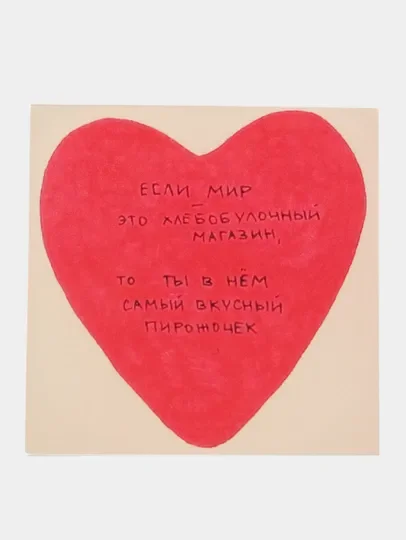 ЕСЛИ МИР
–
ЭТО ХЛЕБОБУЛОЧНЫЙ
МАГАЗИН,
ТО ТЫ В НЁМ
САМЫЙ ВКУСНЫЙ
ПИРОЖОЧЕК